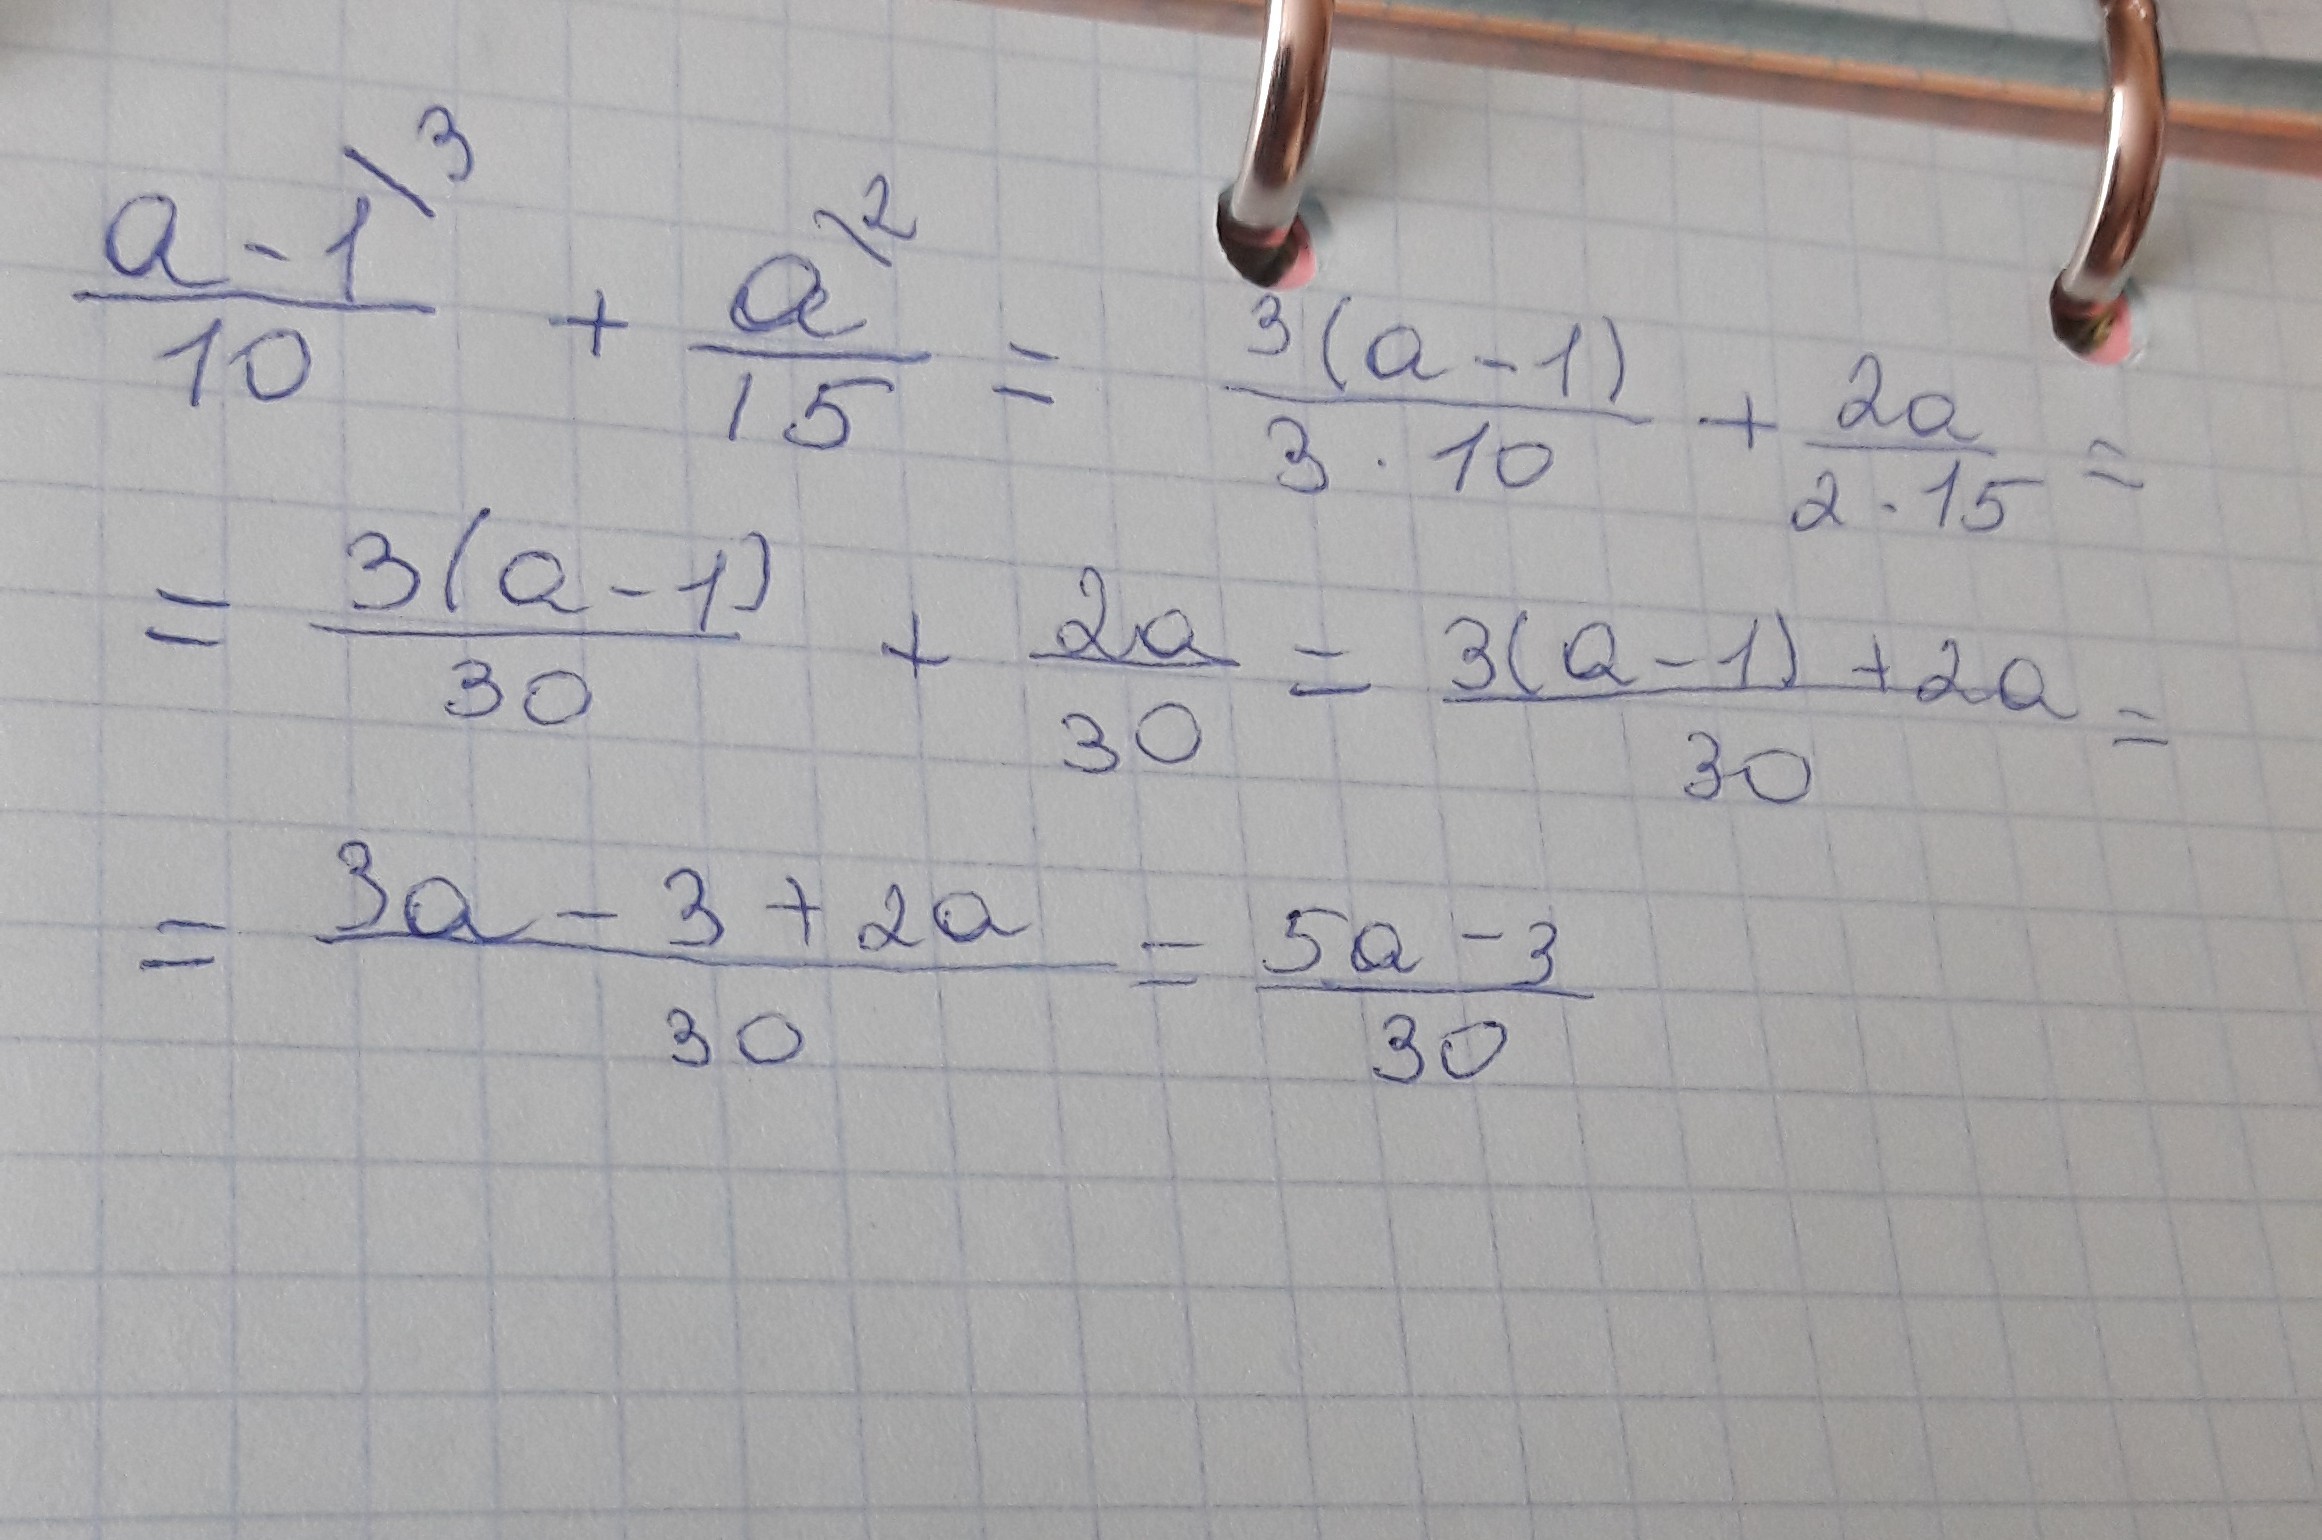 \frac{a-1^{\backslash 3}}{10} + \frac{a^{\backslash 2}}{15} = \frac{3(a-1)}{3 \cdot 10} + \frac{2a}{2 \cdot 15} =
= \frac{3(a-1)}{30} + \frac{2a}{30} = \frac{3(a-1)+2a}{30} =
= \frac{3a-3+2a}{30} = \frac{5a-3}{30}